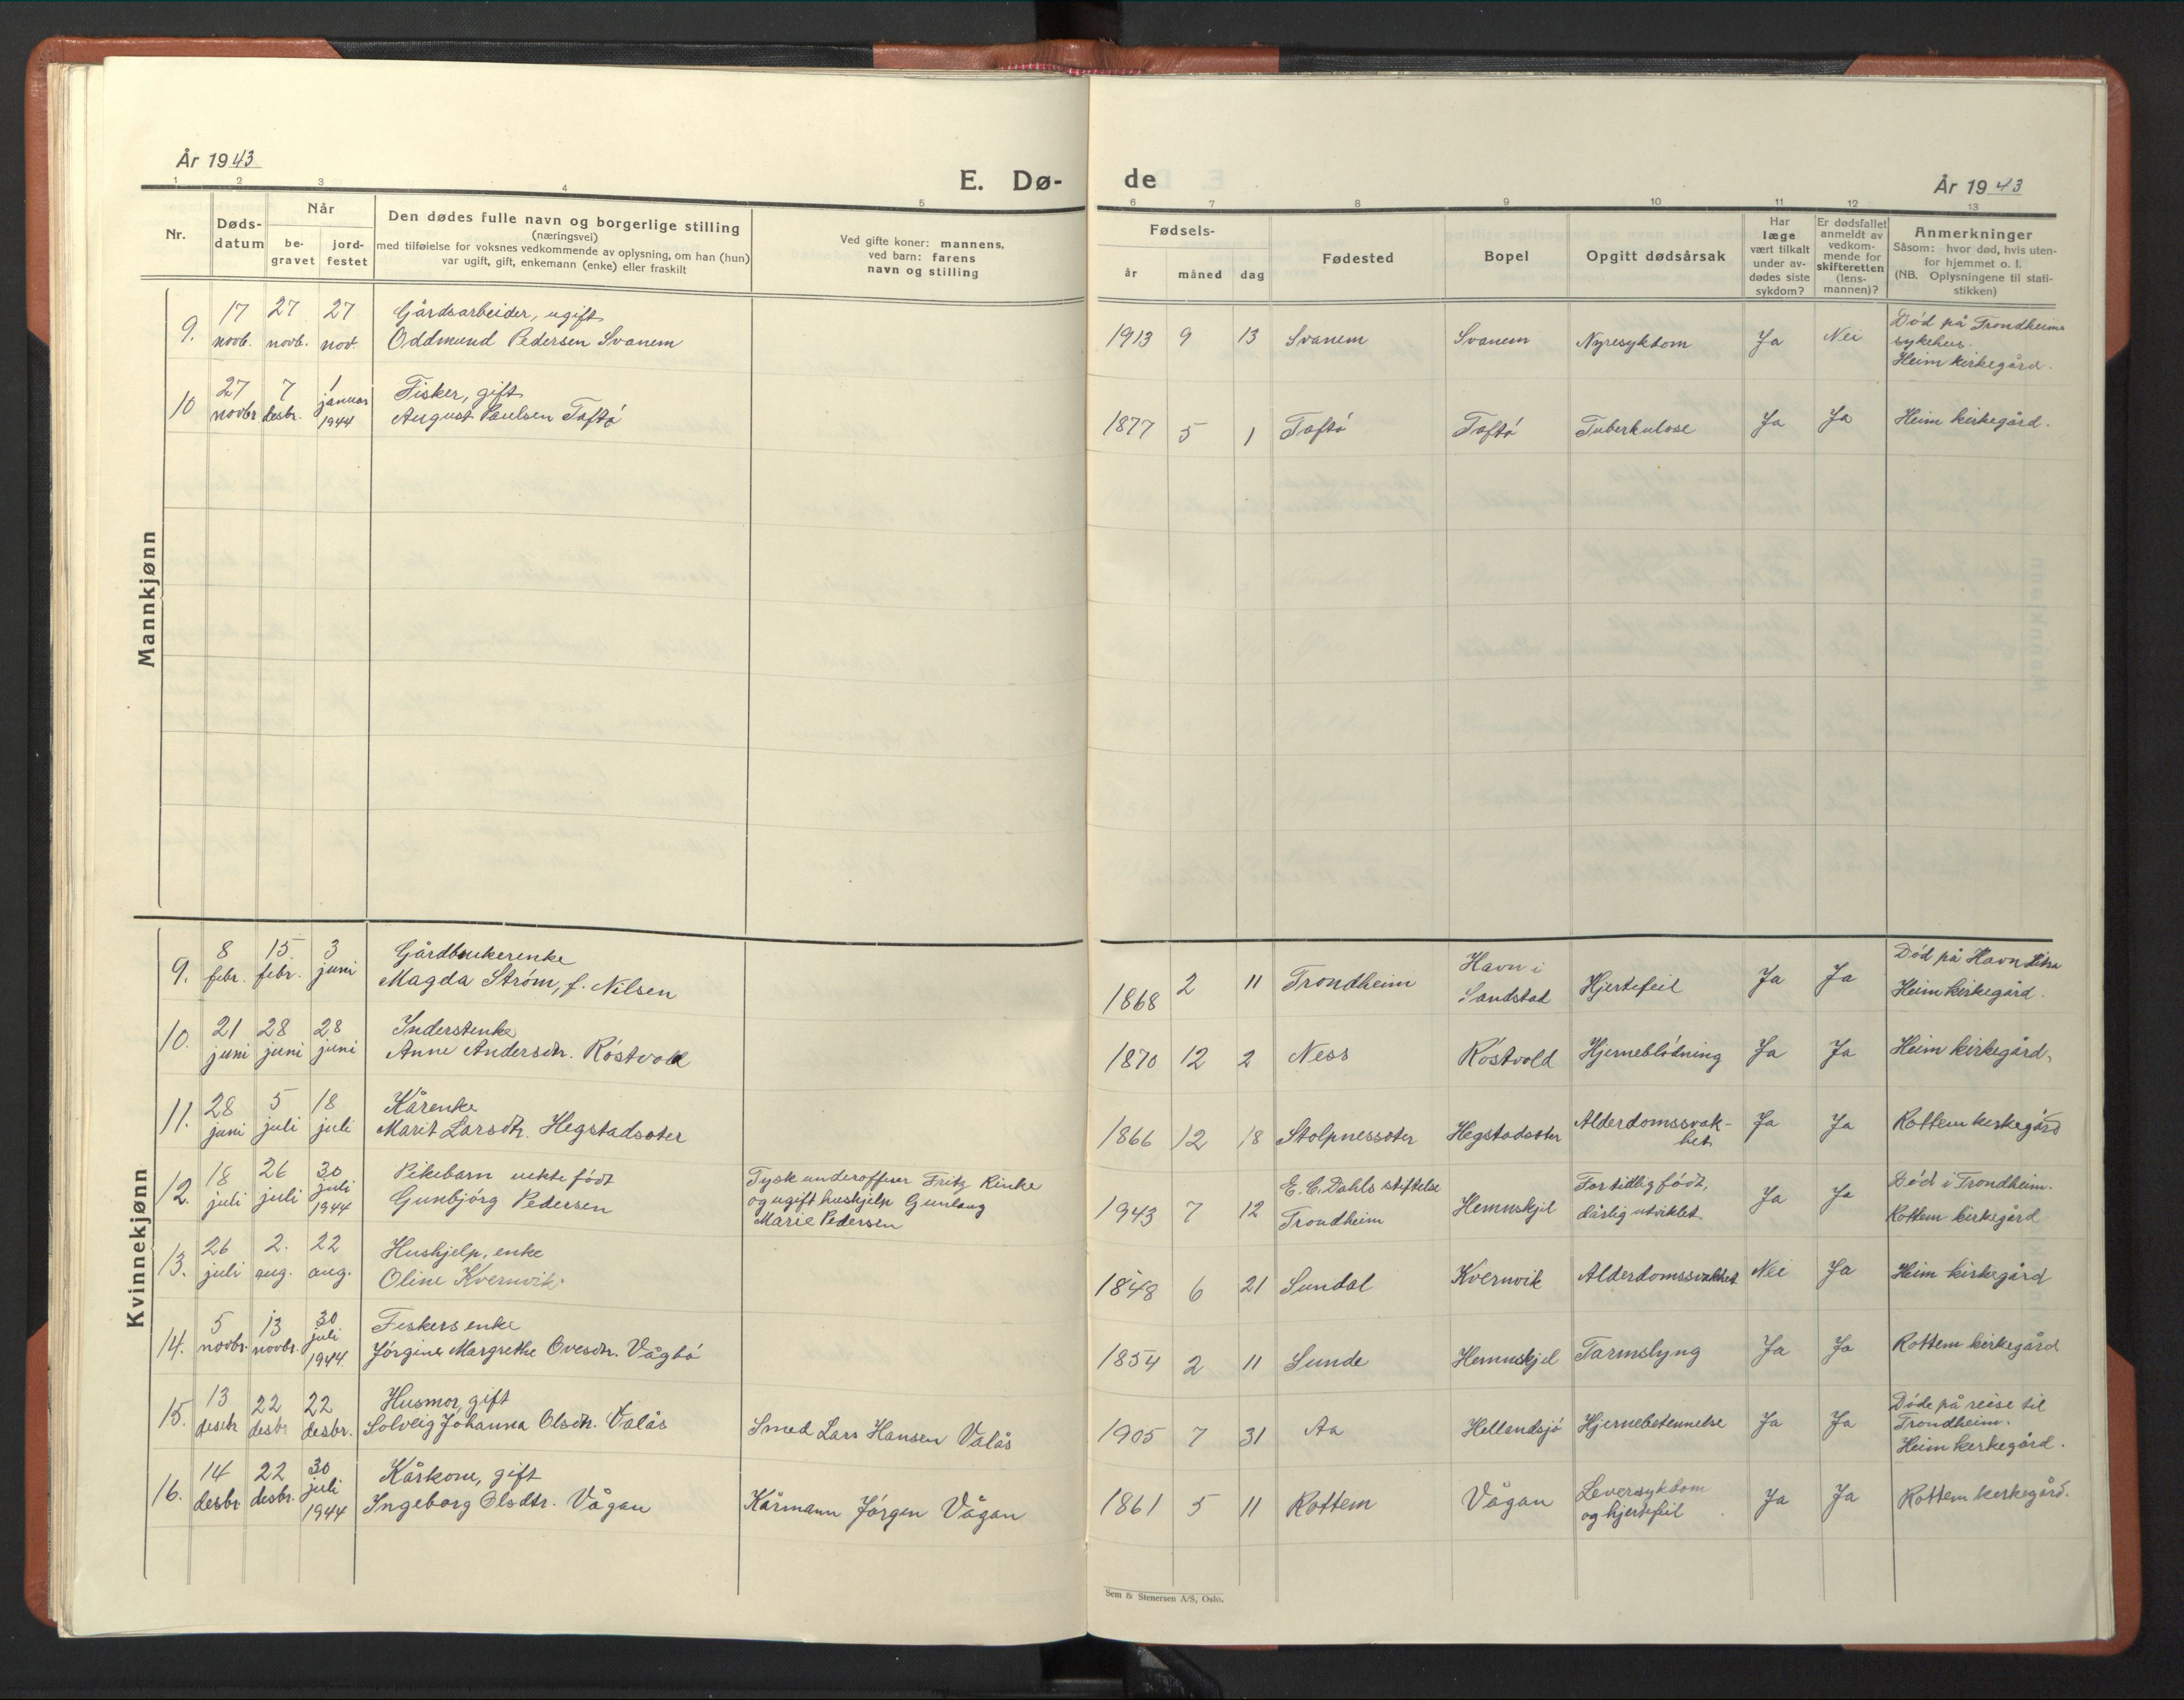 År 1943
E. Dø-
de
År 1943
1 2 3 4 5 6 7 8 9 10 11 12 13
Nr.
Døds-
datum
Når
be-
gravet
jord-
festet
Den dødes fulle navn og borgerlige stilling
(næringsvei)
med tilføielse for voksnes vedkommende av oplysning, om han (hun)
var ugift, gift, enkemann (enke) eller fraskilt
Ved gifte koner: mannens,
ved barn: farens
navn og stilling
Fødsels-
år måned dag
Fødested
Bopel
Opgitt dødsårsak
Har
læge
vært tilkalt
under av-
dødes siste
sykdom?
Er dødsfallet
anmeldt av
vedkom-
mende for
skifteretten
(lens-
mannen)?
Anmerkninger
Såsom: hvor død, hvis uten-
for hjemmet o. l.
(NB. Oplysningene til stati-
stikken)
Mannkjønn
9. 17 novb. 27 novb. 27 nov.
Gårdsarbeider, ugift
Oddmund Pedersen Svanem
1913 9 13 Svanem Svanem Nyresykdom Ja Nei
Død på Trondheims
sykehus.
Heim kirkegård.
10 27 novbr 7 desbr. 1 januar 1944
Fisker, gift
August Paulsen Taftø
1877 5 1 Taftø Taftø Tuberkulose Ja Ja Heim kirkegård.
Kvinnekjønn
9. 8 febr. 15. febr. 3 juni
Gårdbrukerenke
Magda Strøm, f. Nilsen
1868 2 11 Trondheim
Havn i
Sandstad
Hjertefeil Ja Ja
Død på Havn
Heim kirkegård.
10. 21 juni 28 juni 28 juni
Inderstenke
Anne Andersdtr. Røstvold
1870 12 2 Ness Røstvold Hjerneblødning Ja Ja Heim kirkegård.
11. 28 juni 5 juli 18 juli
Kårenke
Marit Larsdtr. Hegstadsøter
1866 12 18 Stolpnessøter Hegstadsøter
Alderdomssvak-
het
Ja Ja Rottem kirkegård
12. 18 juli 26 juli 30 juli 1944
Pikebarn uekte født
Gunbjørg Pedersen
Tysk underoffiser Fritz Rinke
og ugift hushjelp Gunlaug
Marie Pedersen
1943 7 12
E. C. Dahls stiftelse
Trondheim
Hemnskjel
For tidlig født,
dårlig utviklet
Ja Ja
Død i Trondheim.
Rottem kirkegård
13. 26 juli 2. aug. 22 aug.
Hushjelp, enke
Oline Kvernvik.
1848 6 21 Sundal Kvernvik Alderdomssvakhet Nei Ja Heim kirkegård
14. 5 novbr. 13 novbr. 30 juli 1944.
Fiskersenke
Jørgine Margrethe Ovesdtr. Vågbø
1854 2 11 Sunde Hemnskjel Tarmslyng Ja Ja Rottem kirkegård
15. 13 desbr 22 desbr 22 desbr.
Husmor, gift
Solveig Johanna Olsdtr. Valås
Smed Lars Hansen Valås
1905 7 31 Aa Hellandsjø Hjernebetennelse Ja Ja
Døde på reise til
Trondheim.
Heim kirkegård.
16. 14 desbr. 22 desbr. 30 juli 1944
Kårkone, gift
Ingeborg Olsdtr. Vågan
Kårmann Jørgen Vågan
1861 5 11 Rottem Vågan
Leversykdom
og hjertefeil
Ja Ja Rottem kirkegård.
Sem & Stenersen A/S, Oslo.